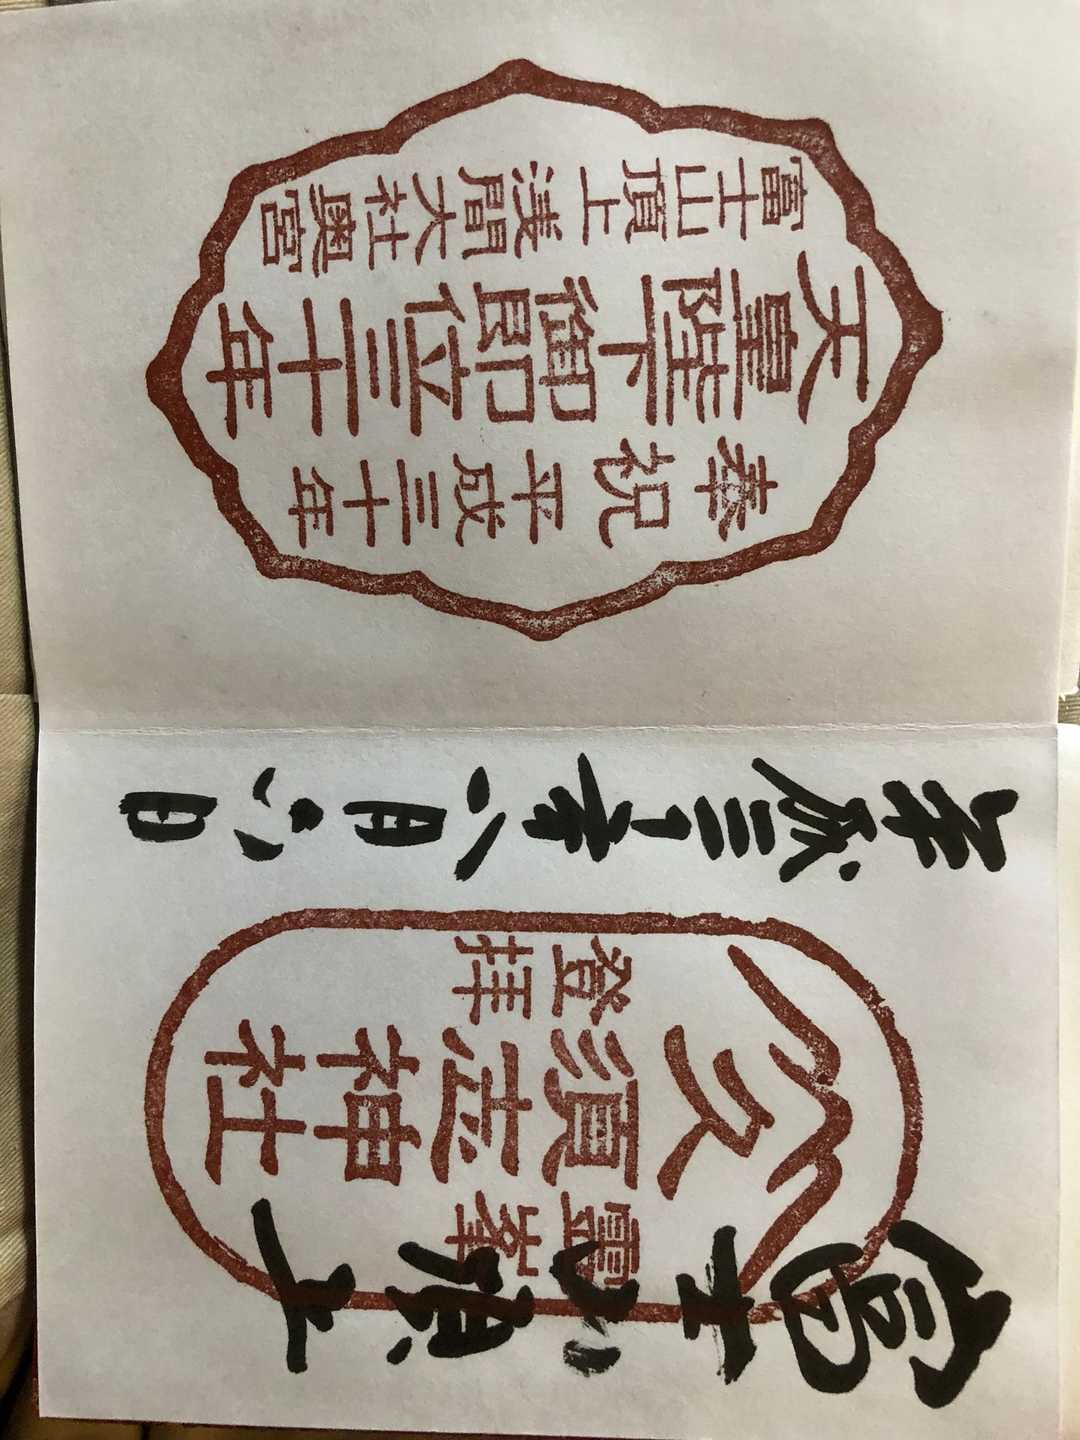 富士山頂上
霊峯
久須志神社
登拝
平成三十年八月 日
奉祝 平成三十年
天皇陛下御即位三十年
富士山頂上浅間大社奥宮